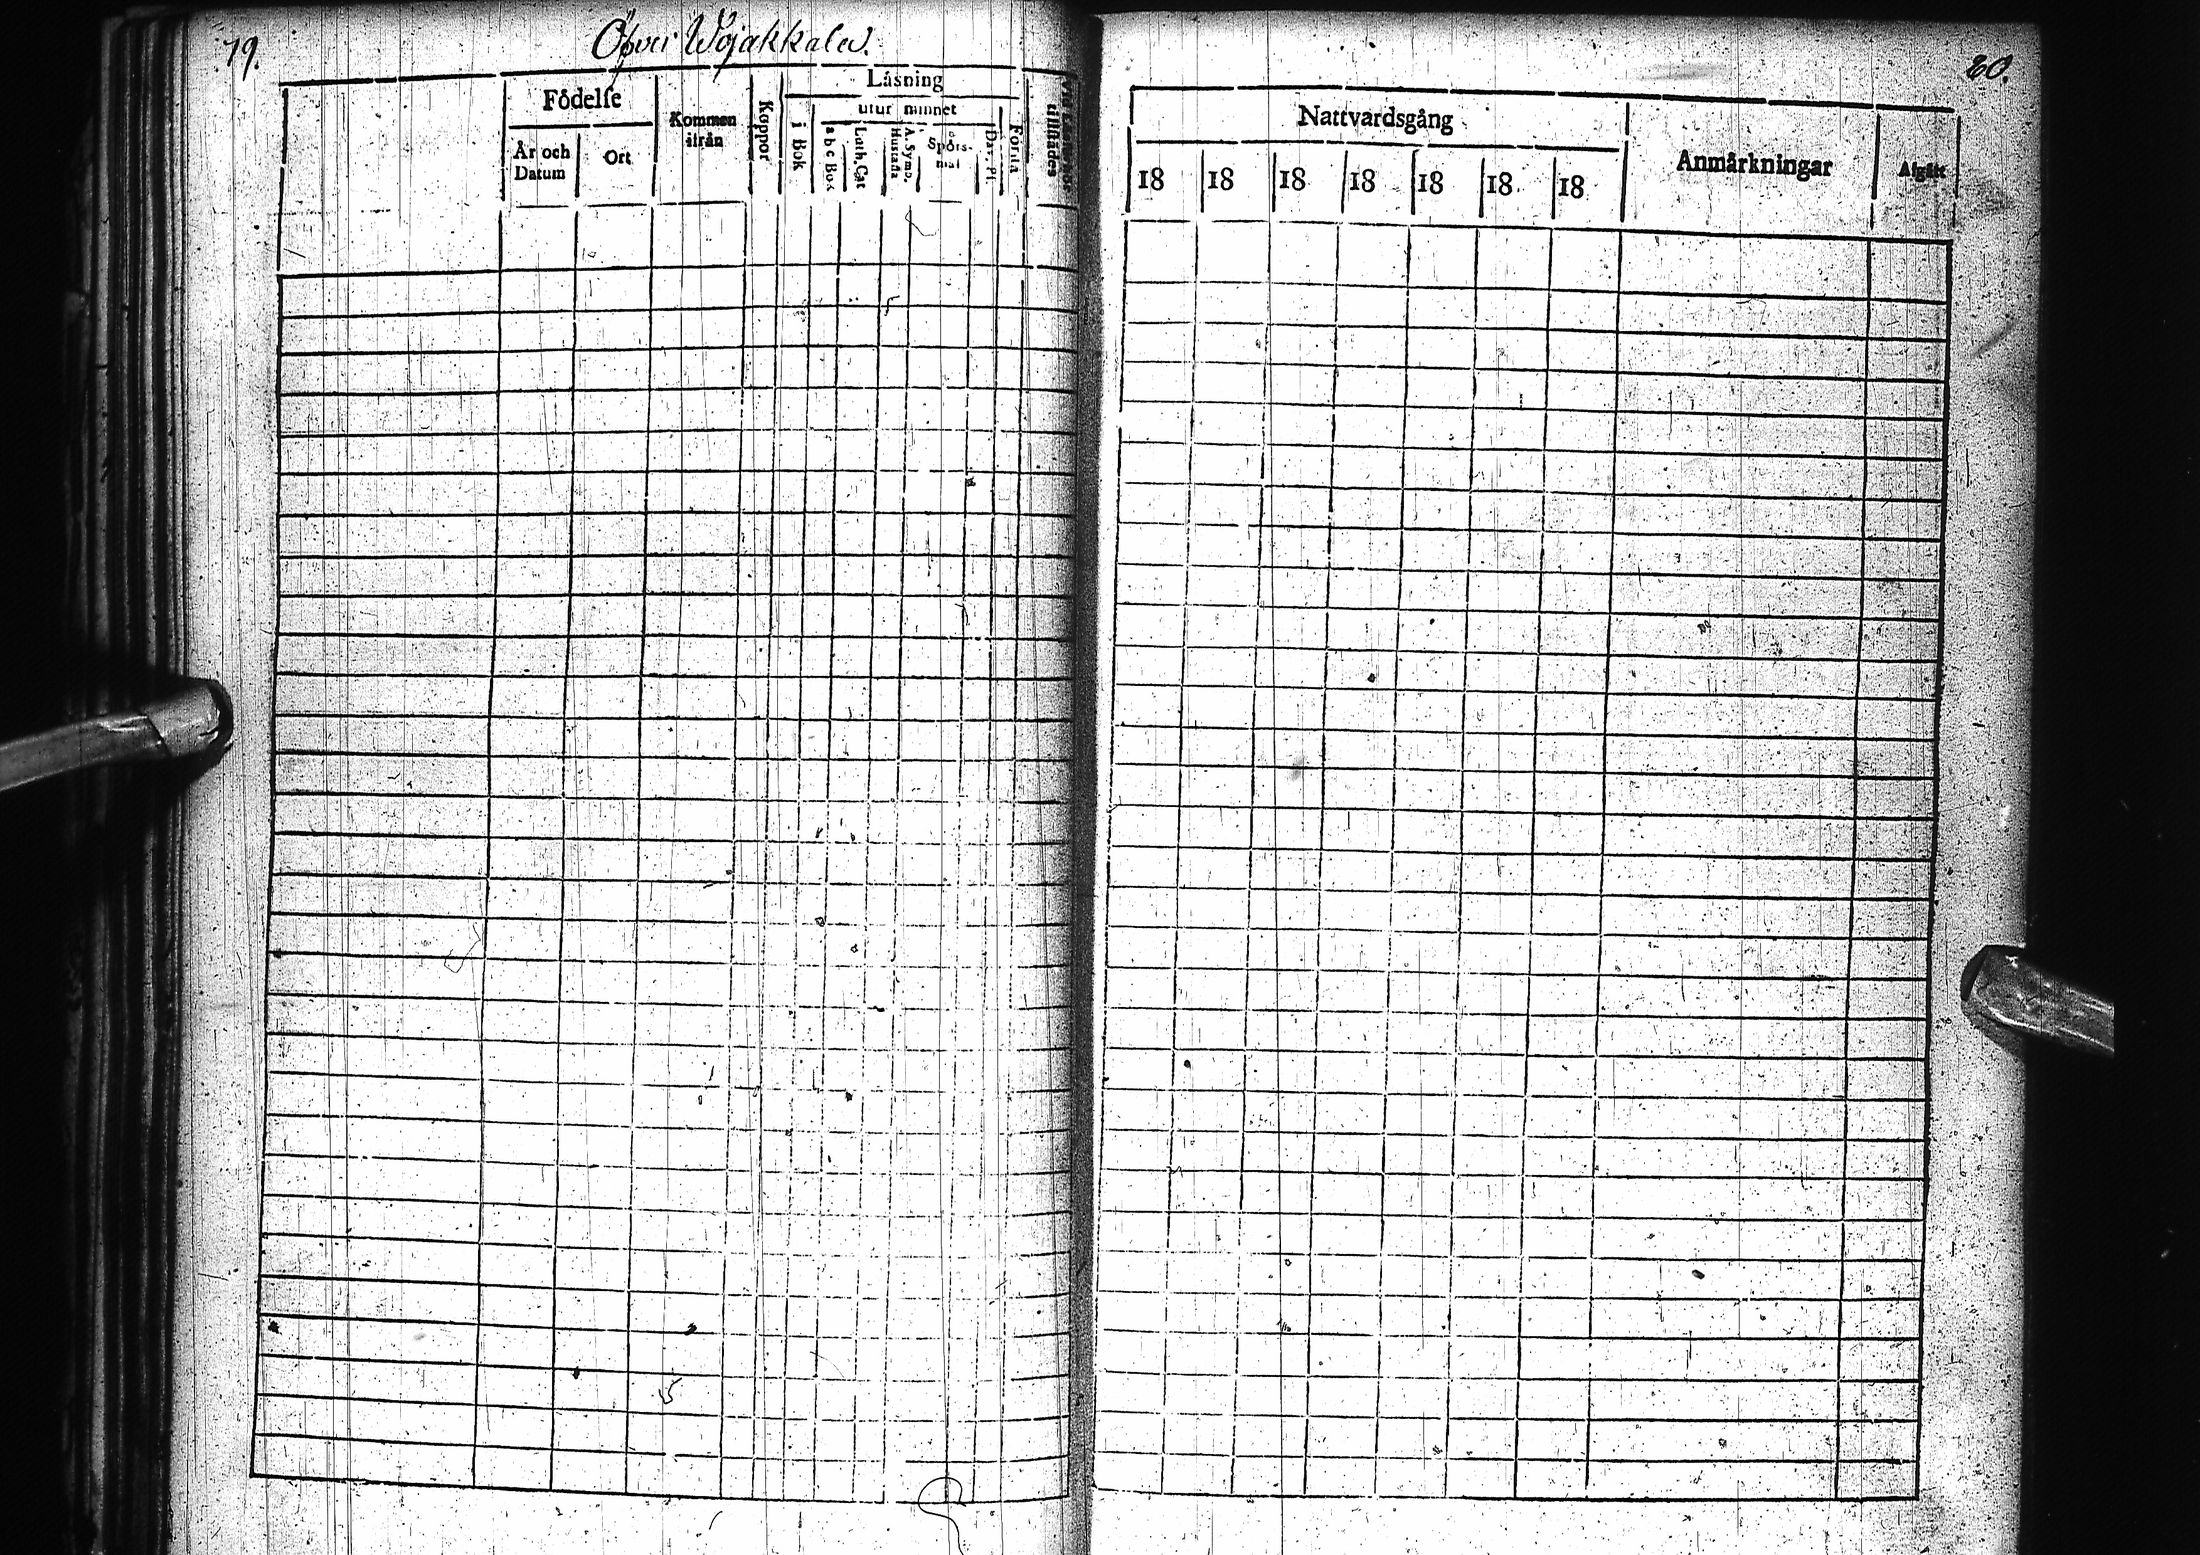 79.
Öfver Wojakkala
Födelse
År och
Datum
Ort
Kommen
ifrån
Koppor
Läsning
i Bok
utur minnet
a b c Bok
Luth. Cat
Hustafla
A. Symb.
Spörs-
mål
Dav. Ps.
Förstå
tillstädes
80.
Nattvardsgång
18 18 18 18 18 18 18
Anmärkningar
Afgått